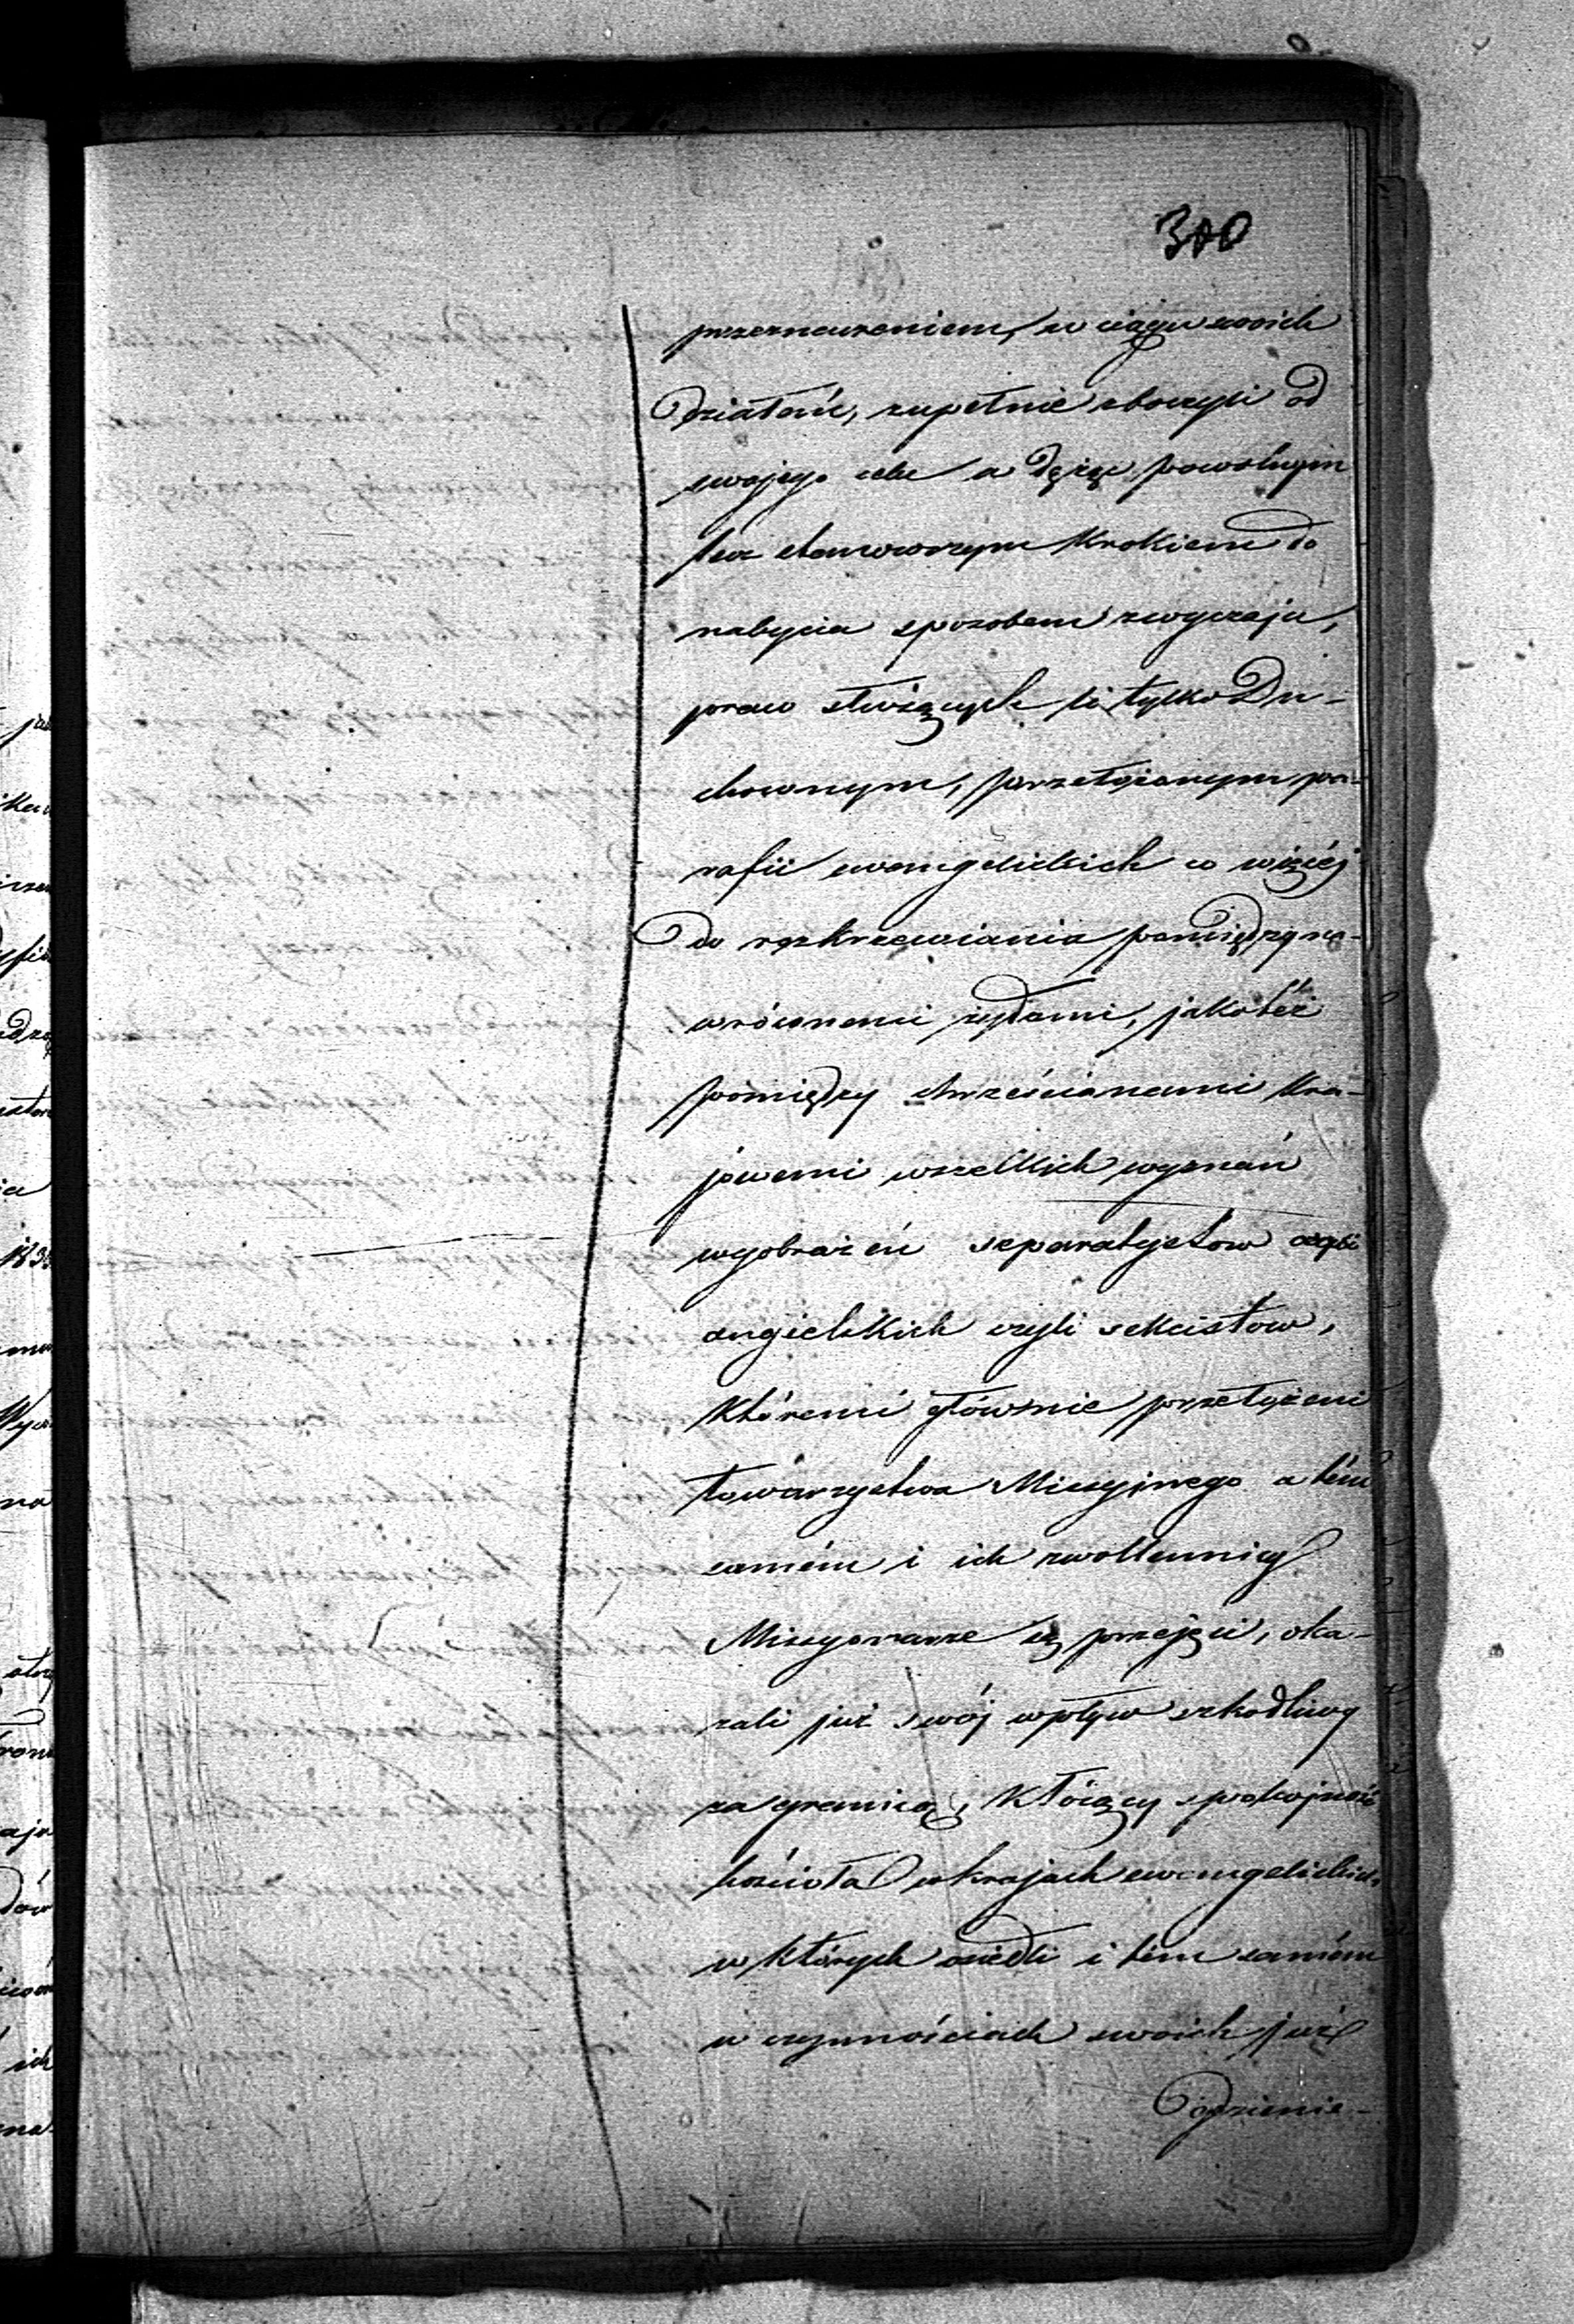 300
przeznaczeniem, w ciągu swoich
działań, zupełnie zboczyli od
swojego celu a dążąc powolnym
lecz stanowczym krokiem do
nabycia sposobem zwyczaju,
praw służących li tylko Du-
chownym, przełożonym pa-
rafii ewangelickich co więcéj
do rozkrzewiania pomiędzy na-
wróconemi żydami, jakotéż
pomiędzy chrześcianami kra-
jowemi wszelkich wyznań
wyobrażeń separatystów czyli
angielskich czyli sekcistow,
któremi głównie przełożeni
towarzystwa Missyjnego a tém
samém i ich zwollennicy
Missyonarze są przejęci, oka-
zali już swój wpływ szkodliwy
za granicą, kłócący spokojność
kościoła w krajach ewangelickich,
w których osiedli i tém samém
w czynnościach swoich już
odzienie-